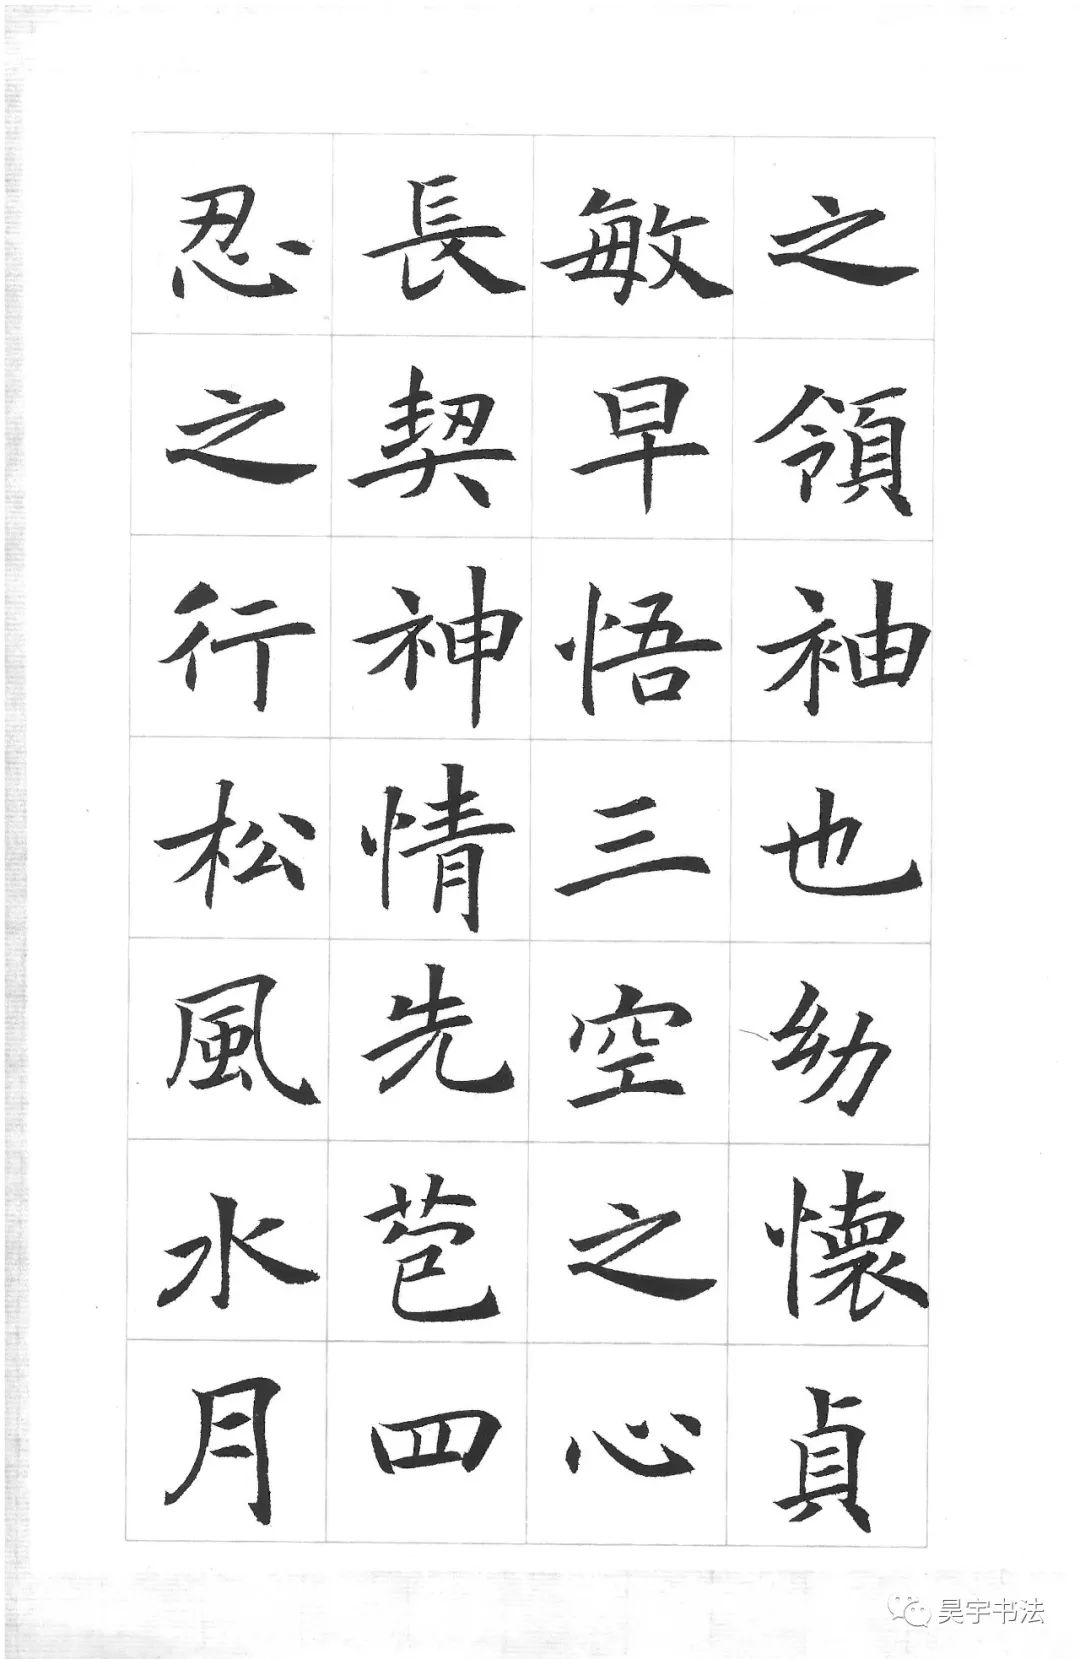 之領袖也幼懷貞
敏早悟三空之心
長契神情先苞四
忍之行松風水月
昊宇书法